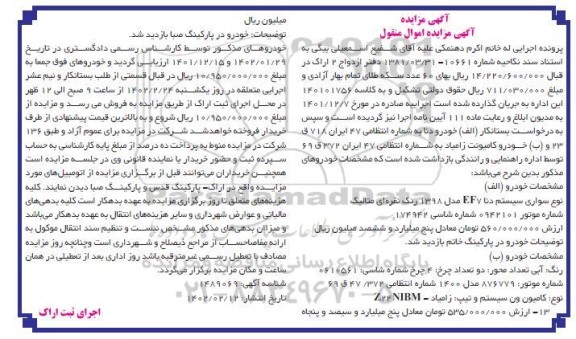 آگهی مزایده
آگهی مزایده اموال منقول
پرونده اجرایی له خانم اکرم دهنمکی علیه آقای شفیع اسمعیلی بیگی به
استناد سند نکاحیه شماره ۱۰۶۶۱-۱۳۸۱/۰۳/۳۱ دفتر ازدواج ۲ اراک در
قبال ۱۴/۲۲۰/۶۰۰/۰۰۰ ریال بهای ۶۰ عدد سکه طلای تمام بهار آزادی و
مبلغ ۷۱۱/۰۳۰/۰۰۰ ریال حقوق دولتی تشکیل و به کلاسه ۱۴۰۱۰۱۷۵۶
این اداره به جریان گذارده شده است اجراییه صادره در مورخ ۱۴۰۱/۱۲/۷
به مدیون ابلاغ و رعایت ماده ۱۱۱ آیین نامه اجرا نیز گردیده است و سپس
به درخواست بستانکار (الف) خودرو دنا به شماره انتظامی ۴۷ ایران ۷۱۸ ق
۲۳ و (ب) خودرو کامیونت زامیاد به شماره انتظامی ۴۷ ایران ۳۷۲ ق ۶۹
توسط اداره راهنمایی و رانندگی بازداشت شده است که مشخصات خودروهای
مذکور بدین شرح می‌باشد:
مشخصات خودرو (الف)
نوع سواری سیستم دنا EF۷ مدل ۱۳۹۸ رنگ نقره‌ای متالیک
شماره موتور ۰۹۴۲۱۰۱ شماره شاسی ۱۷۴۹۴۲
ارزش ۵۶۰/۰۰۰/۰۰۰ تومان معادل پنج میلیارد و ششصد میلیون ریال
توضیحات خودرو در پارکینگ خاتم بازدید شد.
مشخصات خودرو (ب)
رنگ: آبی تعداد محور: دو تعداد چرخ: ۴ چرخ شماره شاسی: ۰۶۱۰۵۶۱
شماره موتور: ۸۷۶۷۷۹ مدل ۱۴۰۰ شماره انتظامی ۳۷۲/ ۴۷ ق ۶۹
نوع: کامیون ون سیستم و تیپ: زامیاد - Z۲۴NIBM
۱۳- ارزش ۵۳۵/۰۰۰/۰۰۰ تومان معادل پنج میلیارد و سیصد و پنجاه
میلیون ریال
توضیحات: خودرو در پارکینگ صبا بازدید شد.
خودروهای مذکور توسط کارشناس رسمی دادگستری در تاریخ
۱۴۰۲/۰۱/۲۹ و ۱۴۰۱/۱۲/۱۵ ارزیابی گردید و خودروهای فوق جمعا به
مبلغ ۱۰/۹۵۰/۰۰۰/۰۰۰ ریال در قبال قسمتی از طلب بستانکار و نیم عشر
اجرایی متعلقه در روز یکشنبه ۱۴۰۲/۲/۲۴ از ساعت ۹ صبح الی ۱۲ ظهر
در محل اجرای ثبت اراک از طریق مزایده به فروش می رسد و مزایده از
مبلغ ۱۰/۹۵۰/۰۰۰/۰۰۰ ریال شروع و به بالاترین قیمت پیشنهادی از طرف
خریدار فروخته خواهد شد شرکت در مزایده برای عموم آزاد و طبق ۱۳۶
شرکت در مزایده منوط به پرداخت ده درصد از مبلغ پایه کارشناسی به حساب
سپرده ثبت و حضور خریدار یا نماینده قانونی وی در جلسه مزایده است
همچنین خریداران می‌توانند قبل از برگزاری مزایده از اتومبیل‌های مورد
مزایده واقع در اراک- پارکینگ قدس و پارکینگ صبا دیدن نمایند. کلیه
هزینه‌های متعلق تا روز برگزاری مزایده به عهده بدهکار است کلیه بدهی‌های
مالیاتی و عوارض شهرداری و سایر هزینه‌های انتقال به عهده بدهکار می‌باشد
و میزان بدهی‌های مذکور مشخص نیست و تنظیم سند انتقال موکول به
ارائه مفاصاحساب از مراجع ذیصلاح و شهرداری است وچنانچه روز مزایده
مصادف با تعطیل رسمی غیرمترقبه باشد روز اداری بعد از تعطیلی در همان
ساعت و مکان مزایده برگزار می‌گردد.
شناسه آگهی: ۱۴۸۹۰۶۹
تاریخ انتشار: ۱۴۰۲/۰۲/۱۲
اجرای ثبت اراک